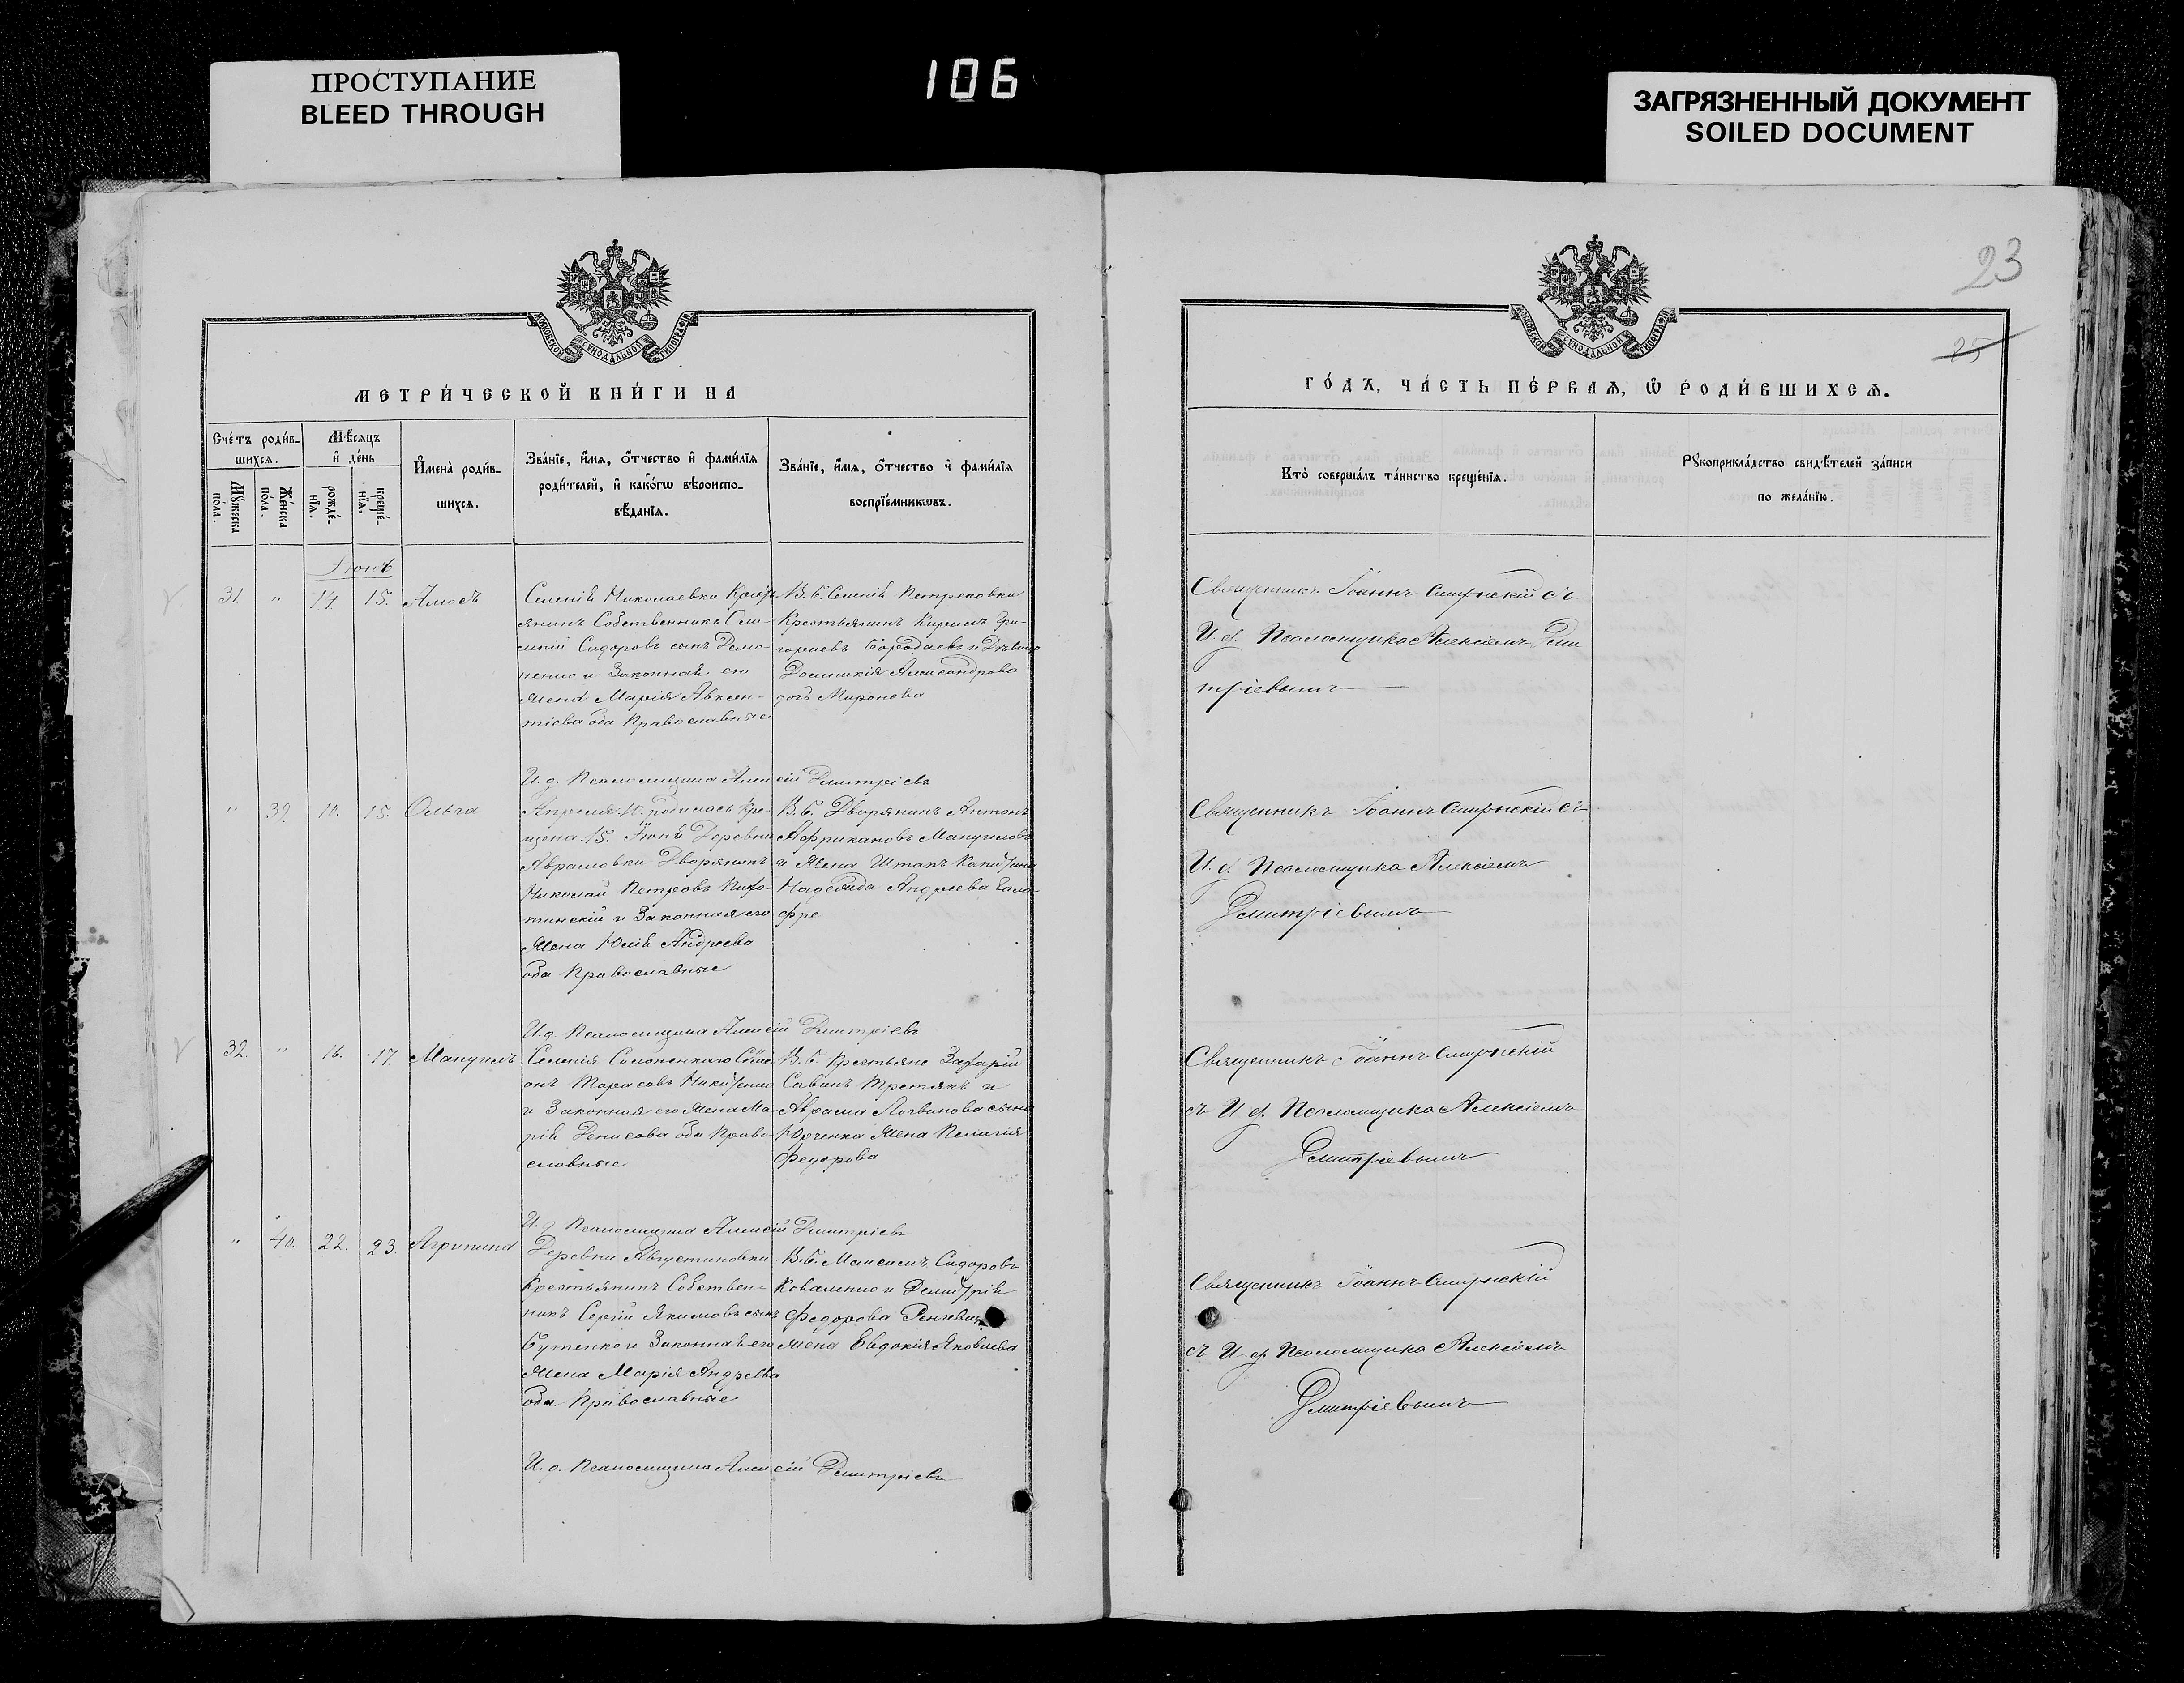 ПРОСТУПАНИЕ
BLEED THROUGH
106
ЗАГРЯЗНЕННЫЙ ДОКУМЕНТ
SOILED DOCUMENT
23
25
МОСКОВСКОЙ СѴНОДАЛЬНОЙ ТИПОГРАФІИ
МЕТРИ́ЧЕСКОЙ КНИ́ГИ НА
Сче́тъ роди́в-
шихсѧ.
Мѣ́сѧцъ
и҆ де́нь
Мꙋ́жеска
пола.
Же́нска
по́ла.
рожде́-
нїѧ.
креще́-
нїѧ.
И҆мена̀ роди́в-
шихсѧ.
Зва́нїе, и҆́мѧ, ѻ҆́тчество и҆ фами́лїѧ
роди́телей, и҆ како́гѡ вѣроиспо-
вѣ́данїѧ.
Зва́нїе, и҆́мѧ, ѻ҆́тчество и҆ фами́лїѧ
воспрїе́мникѡвъ.
Іюнь
31. " 14. 15. Амосъ
Селенія Николаевки Кресть-
янинъ Собственникъ
Сидоровъ сынъ
и Законная его
жена Марія Авксен-
тіева оба Православные
В. б. Селенія Петрековки
Крестьянинъ Кирилъ Гри-
горіевъ Бородаевъ и Дѣвица
Домникія Александрова
дочь Миронова
И. д. Псаломщика Алексій Дмитріевъ
" 39. 10. 15. Ольга
Апреля 10. родилась кре-
щена 15. Іюня Деревни
Аврамовки Дворянинъ
Николай Петровъ
и Законная его
жена Юлія Андреева
оба Православные
В. б. Дворянинъ Антонъ
Африкановъ Мануиловъ
и жена Штапъ Капитана
Надежда Андреева
И. д. Псаломщика Алексій Дмитріевъ
32. " 16. 17. Мануилъ
Селенія
Тарасовъ
и Законная его жена Ма-
рія Денисова оба Право-
славные
В. б. Крестьяне Захарій
Савинъ Третякъ и
Аврама Логвинова сына
Юрченка жена Пелагія
Федорова
И. д. Псаломщика Алексій Дмитріевъ
" 40. 22. 23. Агрипина
Деревни Августиновки
Крестьянинъ Собствен-
никъ Сергій Якимовъ сынъ
Бутенко и Законная его
жена Марія Андреева
оба Православные
В. б. Максимъ Сидоровъ
Коваленко и Димитрія
Федорова
жена Евдокія Яковлева
И. д. Псаломщика Алексій Дмитріевъ
МОСКОВСКОЙ СѴНОДАЛЬНОЙ ТИПОГРАФІИ
ГО́ДЪ, ЧА́СТЬ ПЕ́РВАѦ, Ѡ҆ РОДИ́ВШИХСѦ.
Кто̀ соверша́лъ та́инство креще́нїѧ.
Рꙋкоприкла́дство свидѣ́телей за́писи
по жела́нїю.
Священникъ Іоаннъ Смирнскій съ
И. д. Псаломщика Алексіемъ Дми
тріевымъ
Священникъ Іоаннъ Смирнскій съ
И. д. Псаломщика Алексіемъ
Дмитріевымъ
Священникъ Іоаннъ Смирнскій
съ И. д. Псаломщика Алексіемъ
Дмитріевымъ
Священникъ Іоаннъ Смирнскій
съ И. д. Псаломщика Алексіемъ
Дмитріевымъ